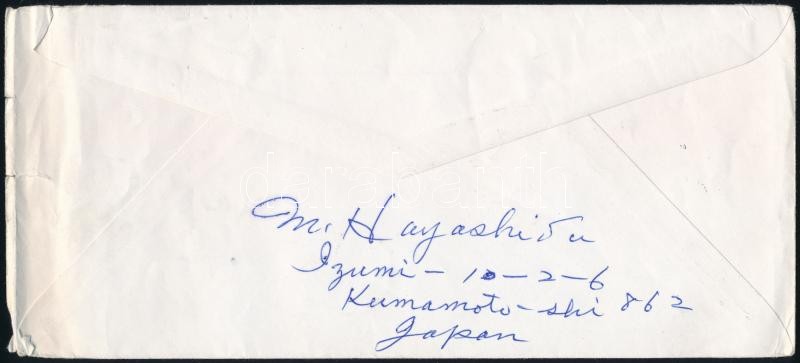 darabanth
M. Hayashida
Izumi - 10-2-6
Kumamoto-shi 862
Japan